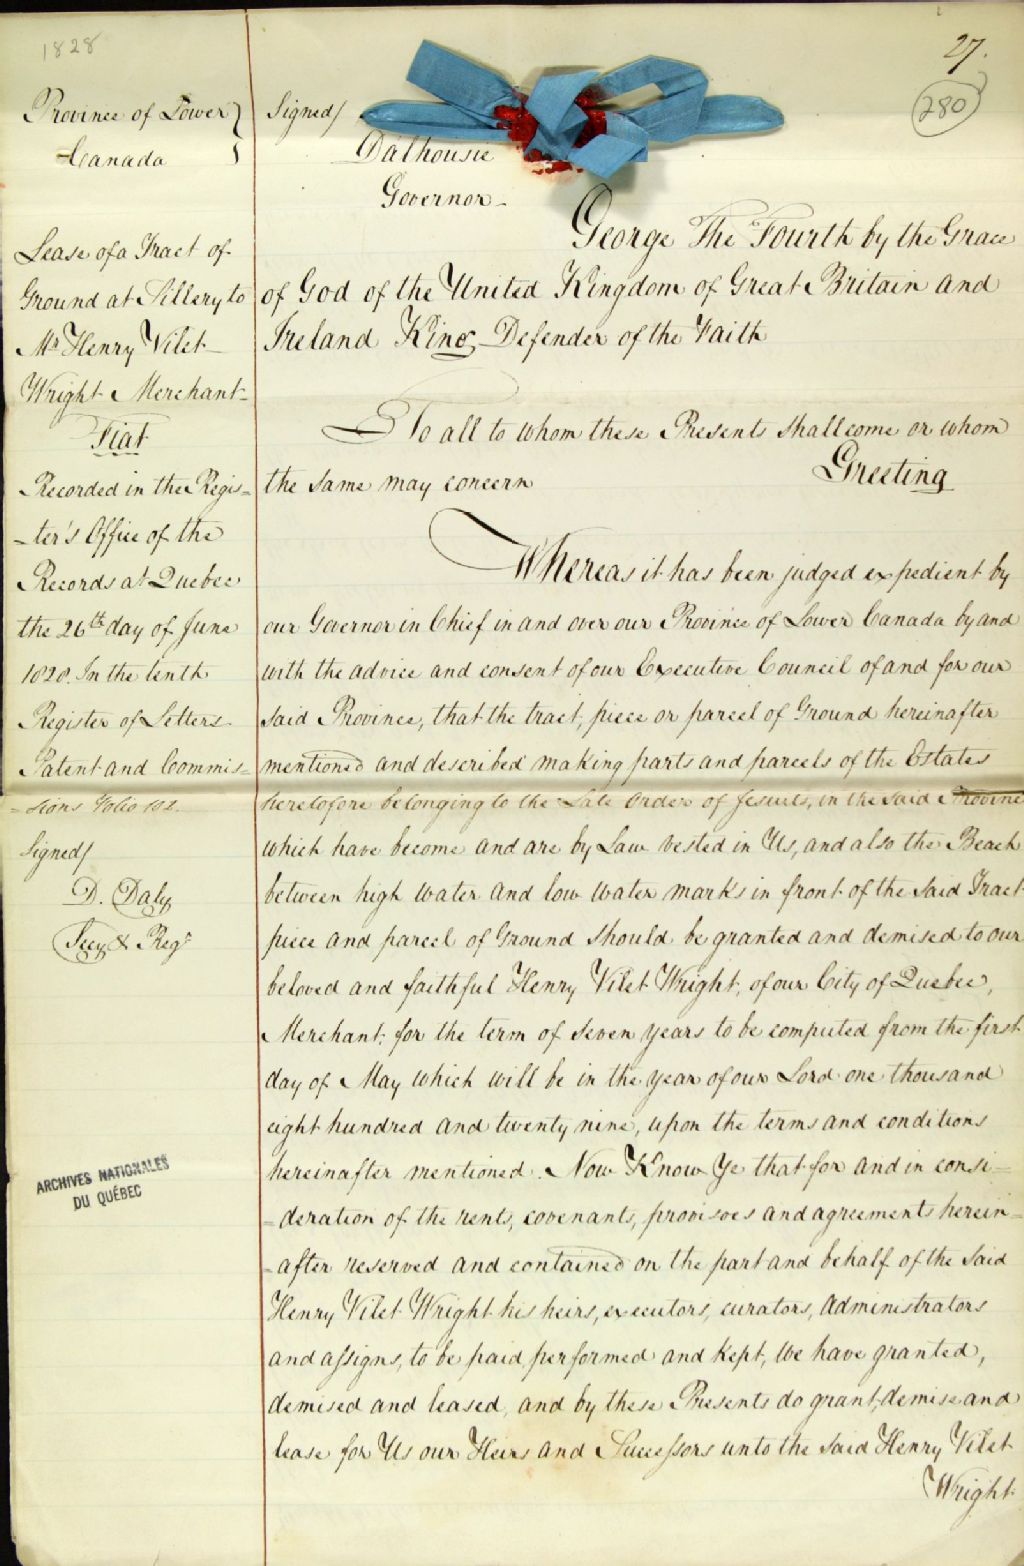 1828
27.
280
Province of Lower
Canada
Lease of a Tract of
Ground at Sillery to
Mr Henry Vilet
Wright Merchant
Fiat
Recorded in the Regis-
-ter's Office of the
Records at Quebec
the 26th day of June
1828. In the tenth
Register of Letters
Patent and Commis-
-sions Folio 102
Signed/
D. Daly
Secy & Regr
ARCHIVES NATIONALES
DU QUÉBEC
Signed/
Dalhousie
Governor-
George The Fourth by the Grace
of God of the United Kingdom of Great Britain and
Ireland King Defender of the Faith
To all to whom these Presents shall come or whom
the same may concern Greeting
Whereas it has been judged expedient by
our Governor in Chief in and over our Province of Lower Canada by and
with the advice and consent of our Executive Council of and for our
said Province, that the tract, piece or parcel of Ground hereinafter
mentioned and described making parts and parcels of the Estates
heretofore belonging to the Late Order of Jesuits, in the said Province
which have become and are by Law vested in Us, and also the Beach
between high water and low water marks in front of the said Tract
piece and parcel of Ground should be granted and demised to our
beloved and faithful Henry Vilet Wright, of our City of Quebec,
Merchant, for the term of seven years to be computed from the first
day of May which will be in the year of our Lord one thousand
eight hundred and twenty nine, upon the terms and conditions
hereinafter mentioned. Now Know Ye that for and in consi-
-deration of the rents, covenants, provisoes and agreements herein-
-after reserved and contained on the part and behalf of the said
Henry Vilet Wright his heirs, executors, curators, Administrators
and assigns, to be paid performed and kept, We have granted,
demised and leased, and by these Presents do grant, demise and
lease for Us our Heirs and Successors unto the said Henry Vilet
Wright